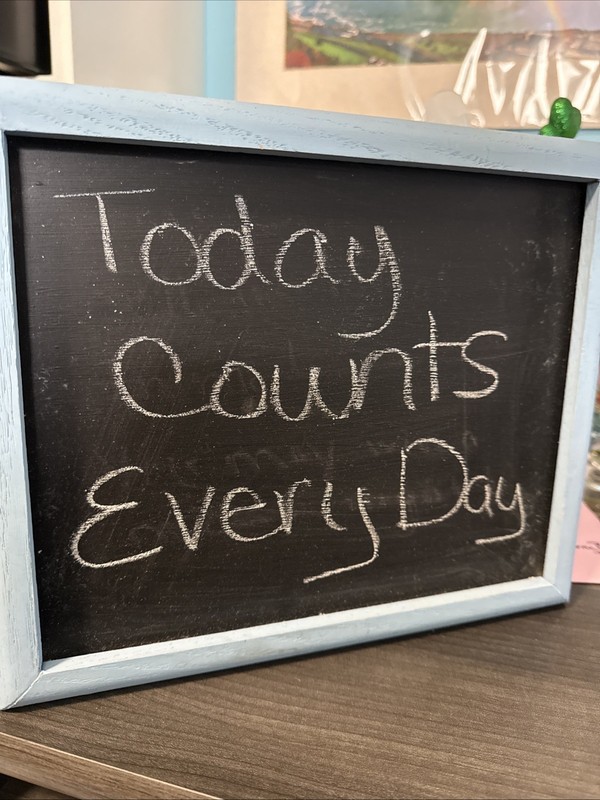 Today
Counts
Every Day